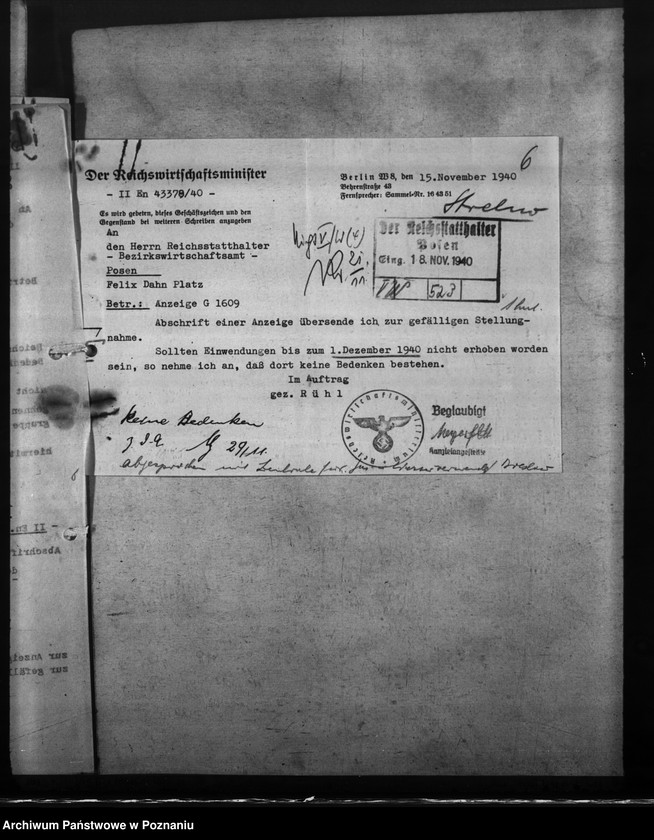 6
Der Reichswirtschaftsminister
- II En 43378/40 -
Berlin W8, den 15.November 1940
Behrenstraße 43
Fernsprecher: Sammel-Nr. 16 43 51
Strelno
Es wird gebeten, dieses Geschäftszeichen und den
Gegenstand bei weiteren Schreiben anzugeben
An
den Herrn Reichsstatthalter
- Bezirkswirtschaftsamt -
Posen
Felix Dahn Platz
Der Reichsstatthalter
Posen
Eing. 18. NOV. 1940
523
21/11
Betr.: Anzeige G 1609
Abschrift einer Anzeige übersende ich zur gefälligen Stellung-
nahme.
Sollten Einwendungen bis zum 1.Dezember 1940 nicht erhoben worden
sein, so nehme ich an, daß dort keine Bedenken bestehen.
Im Auftrag
gez. Rühl
Keine Bedenken
z.d.A. 29/11.
abgesprochen mit
Reichswirtschaftsministerium
Beglaubigt
Kanzleiangestellte
- II En.
Abschrif
zur Anzei
zur gefäl
Archiwum Państwowe w Poznaniu